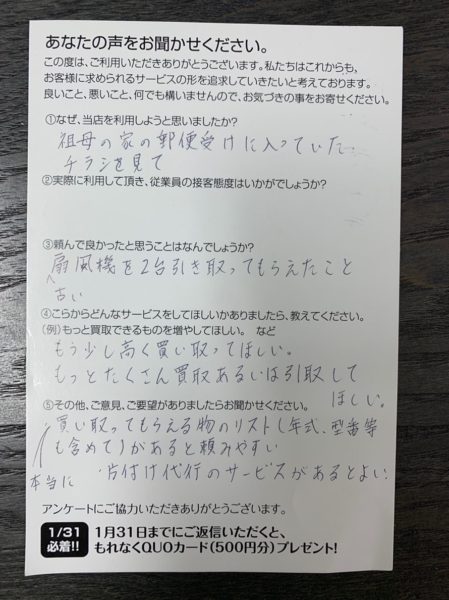 あなたの声をお聞かせください。
この度は、ご利用いただきありがとうございます。私たちはこれからも、
お客様に求められるサービスの形を追求していきたいと考えております。
良いこと、悪いこと、何でも構いませんので、お気づきの事をお寄せください。
①なぜ、当店を利用しようと思いましたか?
祖母の家の郵便受けに入っていた
チラシを見て
②実際に利用して頂き、従業員の接客態度はいかがでしょうか?
③頼んで良かったと思うことはなんでしょうか?
扇風機を2台引き取ってもらえたこと
古い
④こらからどんなサービスをしてほしいかありましたら、教えてください。
(例)もっと買取できるものを増やしてほしい。 など
もう少し高く買い取ってほしい。
もっとたくさん買取あるいは引取して
ほしい。
⑤その他、ご意見、ご要望がありましたらお聞かせください。
買い取ってもらえる物のリスト(年式、型番等
も含めて)があると頼みやすい
本当に 片付け代行のサービスがあるとよい
アンケートにご協力いただきありがとうございます。
1/31
必着!!
1月31日までにご返信いただくと、
もれなくQUOカード(500円分)プレゼント!